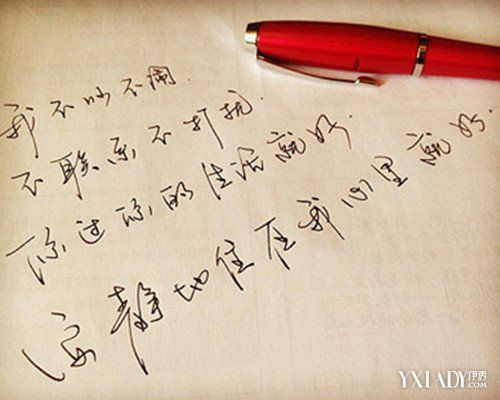 我不吵不闹.
不联系不打扰.
你过你的生活就好.
安静地住在我心里就好.
YXLADY伊秀
.COM